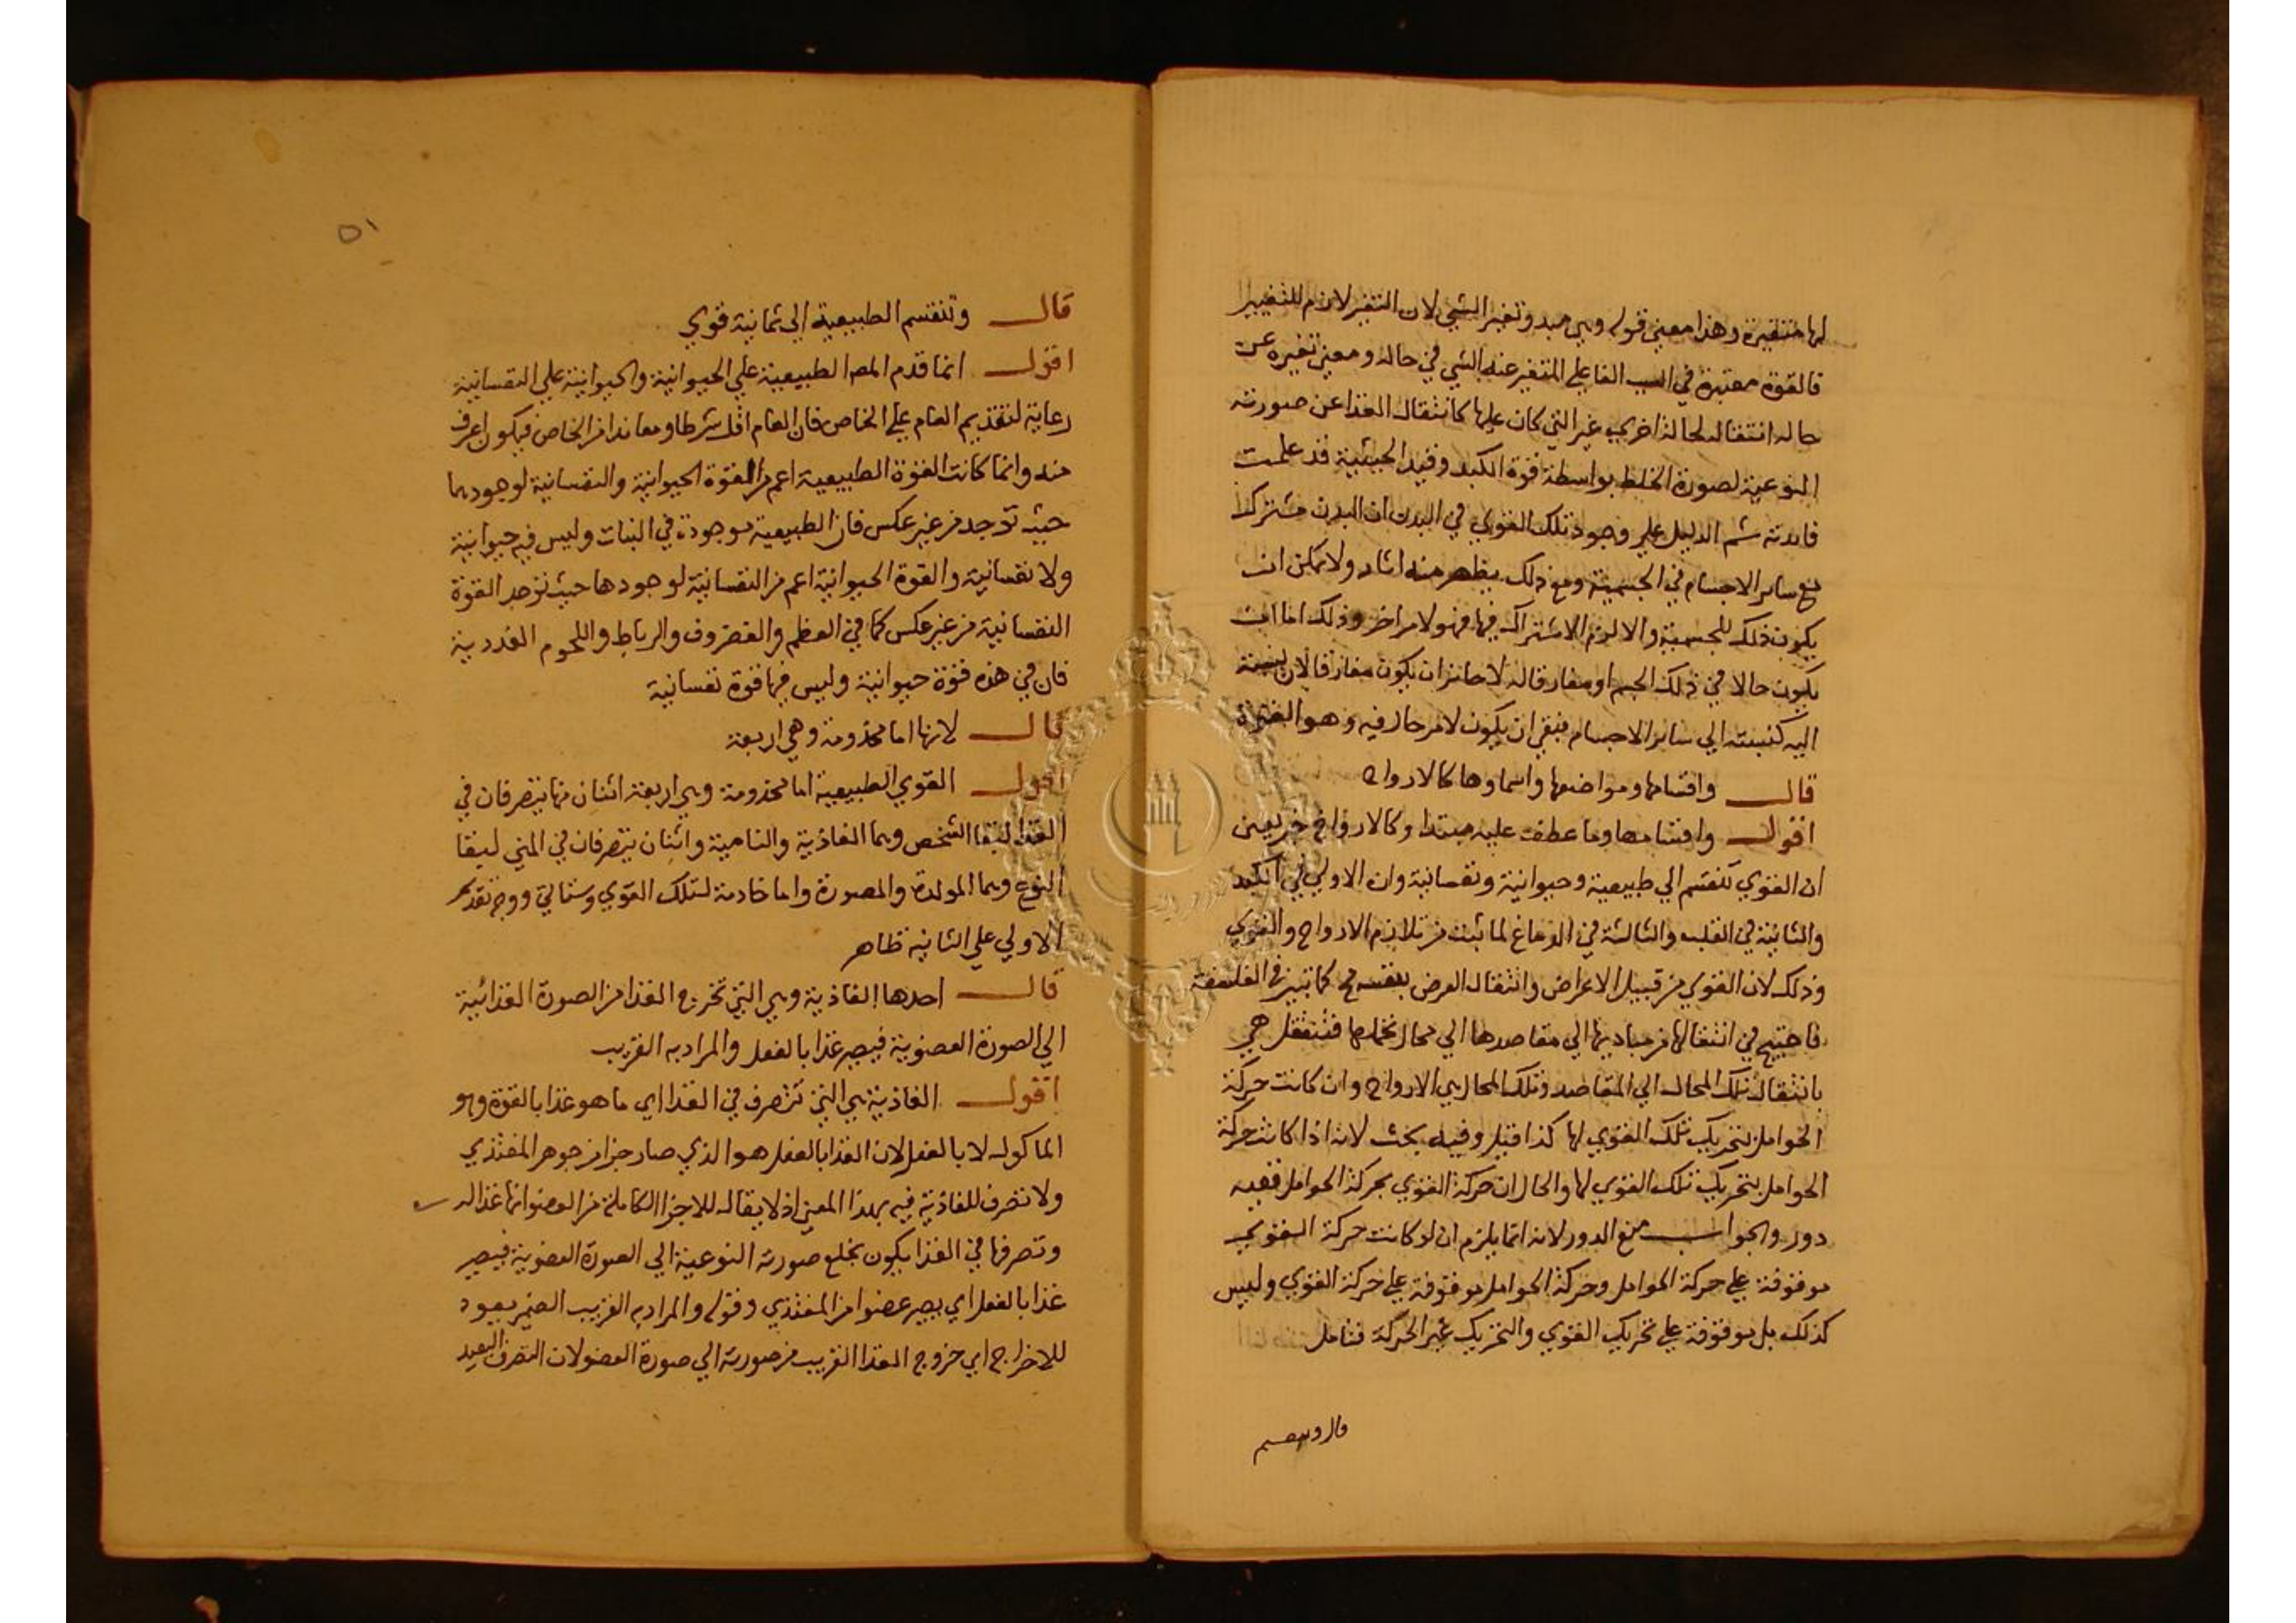 لها متغيرة وهذا معني قوله وهي مبدو تغير الشي لان التغير لازم للتغيير
فالقوة معتبرة في السبب الفاعلي المتغير عنه الشي في حاله ومعني تغيره عن
حاله انتقاله لحالة اخري غير التي كان عليها كانتقال الغذا عن صورته
النوعية لصورة الخلط بواسطة قوة الكبد وقيد الحيثية قد علمت
فايدته ثم الدليل علي وجود تلك القوي في البدن ان البدن مشترك
مع ساير الاجسام في الجسمية ومع ذلك يظهر منه اثار ولا يمكن ان
يكون ذلك للجسمية والا لزم الاشتراك فيها فهو لامر اخر وذلك اما ان
يكون حالا في ذلك الجسم او مفارقا له لا جايز ان يكون مفارقا لان نسبته
اليه كنسبته الي ساير الاجسام فبقي ان يكون لامر حال فيه وهو القوة
قال واقسامها ومواضعها واسماوها كالارواح
اقول واقسامها وما عطف عليه مبتدا وكالارواح خبر يعني
ان القوي تنقسم الي طبيعية وحيوانية ونفسانية وان الاولي في الكبد
والثانية في القلب والثالثة في الدماغ لما ثبت من تلازم الارواح والقوي
وذلك لان القوي من قبيل الاعراض وانتقال العرض بنفسه مح كما تبين في الفلسفة
فاحتيج في انتقالها من مباديها الي مقاصدها الي محال تحملها فتنتقل هي
بانتقال تلك المحال الي المقاصد وتلك المحال هي الارواح وان كانت حركة
الحوامل بتحريك تلك القوي لها كذا قيل وفيه بحث لانه اذا كانت حركة
الحوامل بتحريك تلك القوي لها والحال ان حركة القوي بحركة الحوامل ففيه
دور والجواب منع الدور لانه انما يلزم ان لو كانت حركة القوي
موقوفة علي حركة الحوامل وحركة الحوامل موقوفة علي حركة القوي وليس
كذلك بل موقوفة علي تحريك القوي والتحريك غير الحركة فتامل
قال وتنقسم
٥١
قال وتنقسم الطبيعية الي ثمانية قوي
اقول انما قدم المص الطبيعية علي الحيوانية والحيوانية علي النفسانية
رعاية لتقديم العام علي الخاص فان العام اقل شرطا ومعاندا من الخاص فيكون اعرف
منه وانما كانت القوة الطبيعية اعم من القوة الحيوانية والنفسانية لوجودها
حيث توجد من غير عكس فان الطبيعية موجودة في النبات وليس فيه حيوانية
ولا نفسانية والقوة الحيوانية اعم من النفسانية لوجودها حيث توجد القوة
النفسانية من غير عكس كما في العظم والغضروف والرباط واللحوم الغددية
فان في هذه قوة حيوانية وليس فيها قوة نفسانية
قال لانها اما مخدومة وهي اربعة
اقول القوي الطبيعية اما مخدومة وهي اربعة اثنان منها يتصرفان في
الغذا لبقا الشخص وهما الغاذية والنامية واثنان يتصرفان في المني لبقا
النوع وهما المولدة والمصورة واما خادمة لتلك القوي وستاتي ووجه تقديم
الاولي علي الثانية ظاهر
قال احدها الغاذية وهي التي تخرج الغذا من الصورة الغذائية
الي الصورة العضوية فيصير غذا بالفعل والمراد به القريب
اقول الغاذية هي التي تتصرف في الغذا اي ما هو غذا بالقوة وهو
الماكول لا بالفعل لان الغذا بالفعل هو الذي صار جزا من جوهر المغتذي
ولا تصرف للغاذية فيه بهذا المعني اذ لا يقال للاجزا الكاملة من العضو انها غذا له
وتصرفها في الغذا يكون بخلع صورته النوعية الي الصورة العضوية فيصير
غذا بالفعل اي يصير عضوا من المغتذي وقوله والمراد به القريب الضمير يعود
للاخراج اي خروج الغذا القريب من صورته الي صورة العضو لان التصرف البعيد